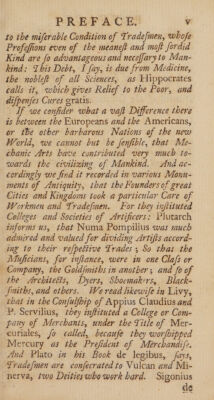 PREFACE. v
to the miſerable Condition of Tradeſmen, whoſe
Profeſſions even of the meaneſt and moſt ſordid
Kind are ſo advantageous and neceſſary to Man-
kind: This Debt, I ſay, is due from Medicine,
the nobleſt of all Sciences, as Hippocrates
calls it, which gives Relief to the Poor, and
diſpenſes Cures gratis.
If we conſider what a vaſt Difference there
is between the Europeans and the Americans,
or the other barbarous Nations of the new
World, we cannot but be ſenſible, that Me-
chanic Arts have contributed very much to-
wards the civilizing of Mankind. And ac-
cordingly we find it recorded in various Monu-
ments of Antiquity, that the Founders of great
Cities and Kingdoms took a particular Care of
Workmen and Tradeſmen. For they inſtituted
Colleges and Societies of Artificers: Plutarch
informs us, that Numa Pompilius was much
admired and valued for dividing Artiſts accord-
ing to their reſpective Trades; So that the
Muſicians, for inſtance, were in one Claſs or
Company, the Goldſmiths in another; and ſo of
the Architects, Dyers, Shoemakers, Black-
ſmiths, and others. We read likewiſe in Livy,
that in the Conſulſhip of Appius Claudius and
P. Servilius, they inſtituted a College or Com-
pany of Merchants, under the Title of Mer-
curiales, ſo called, becauſe they worſhipped
Mercury as the Preſident of Merchandiſe.
And Plato in his Book de legibus, ſays,
Tradeſmen are conſecrated to Vulcan and Mi-
nerva, two Deities who work hard. Sigonius